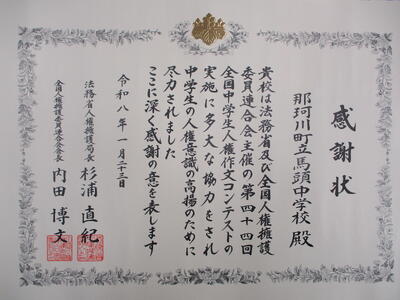 感謝状
那珂川町立馬頭中学校 殿
貴校は法務省及び全国人権擁護
委員連合会主催の第四十四回
全国中学生人権作文コンテストの
実施に多大な協力をされ
中学生の人権意識の高揚のために
尽力されました
ここに深く感謝の意を表します
令和八年一月二十三日
法務省人権擁護局長 杉浦直紀
全国人権擁護委員連合会会長 内田博文